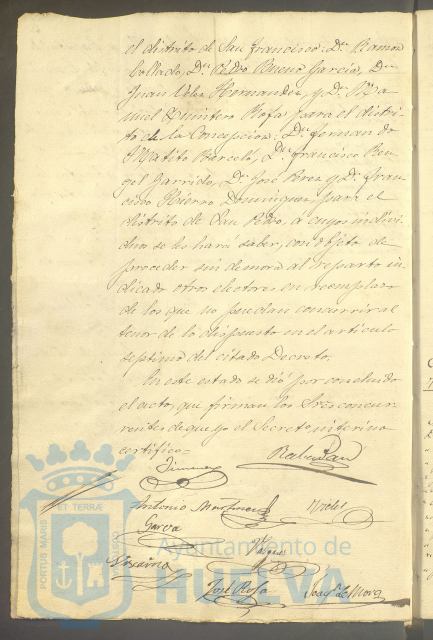 el distrito de San Francisco: Dn. Ramon
Collado, Dn. Pedro Bueno Garcia, Dn.
Juan Velez Hernandez, y Dn. Ma
nuel Quintero Rofa para el distri
to de la Concepcion: Dn. Fernan do
Matito Barceló, Dn. Francisco Ren
gel Garrido, Dn. José Perez y Dn. Fran
cisco Hierro Dominguez, para el
distrito de San Pedro. á cuyos indivi
duos se les hará saber, con objeto de
proceder sin demora al reparto in
dicado otros electores en reemplazo
de los que no puedan concurrir al
tenor de lo dispuesto en el artículo
septimo del citado Decreto.
En este estado se dió por concluido
el acto, que firman los Sres concur
rentes de que yo el Secreto. interino
certifico=
Jimenez
Antonio Martinez
Garcia
Vizcaino
Vazquez
José Rofa Joaqn. de Mora
PORTUS MARIS ET TERRÆ
Ayuntamiento de
HUELVA